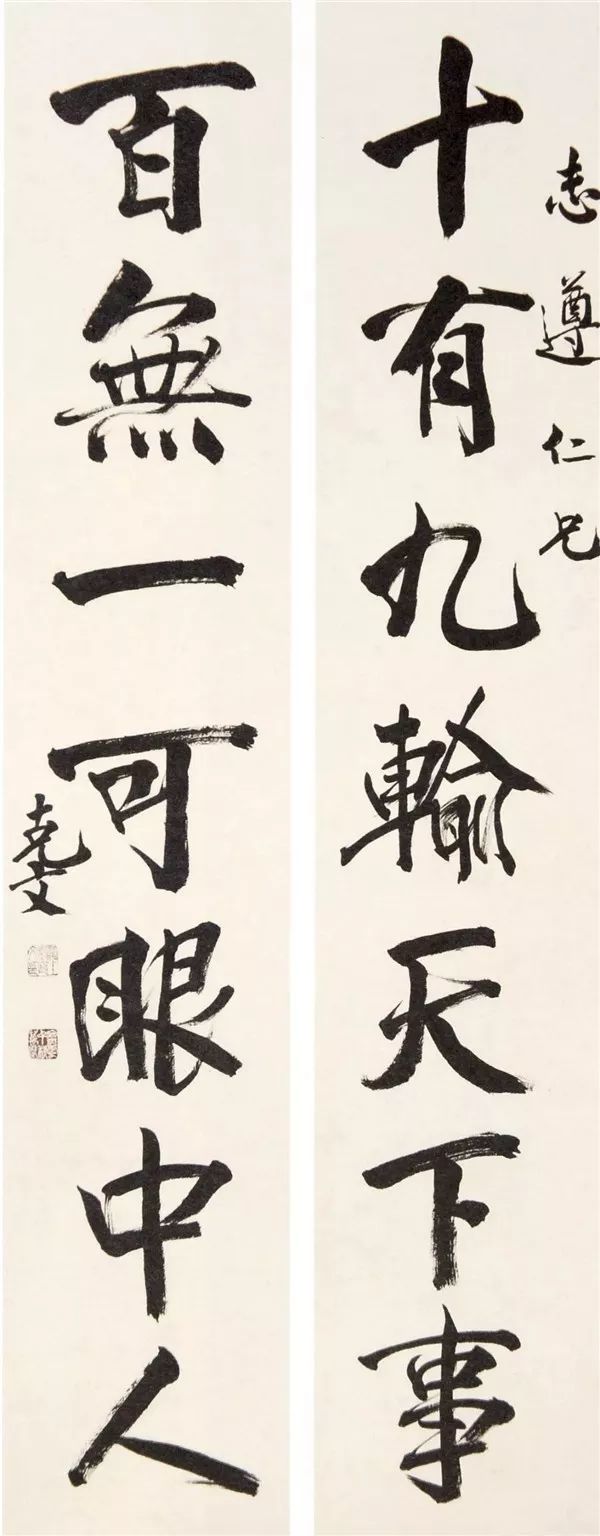 志遵仁兄
十有九輸天下事
百無一可眼中人
克文